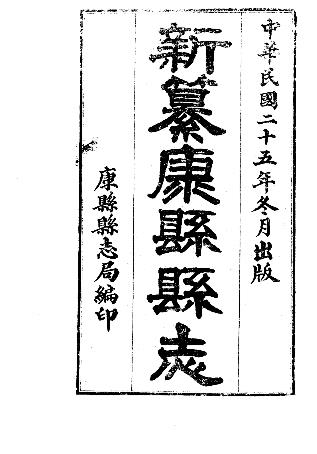 中華民國二十五年冬月出版
新纂康縣縣志
康縣縣志局編印